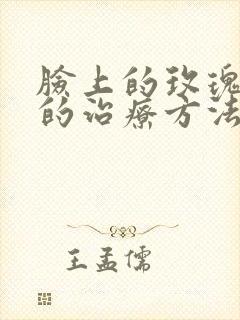 臉上的玫瑰
的治療方法
王孟儒